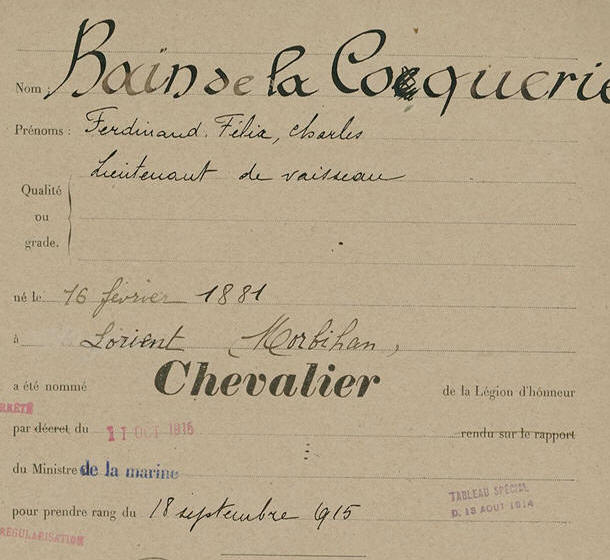 Nom : Bain de la Cocquerie
Prénoms : Ferdinand. Félix, Charles
Lieutenant de vaisseau
Qualité
ou
grade.
né le 16 février 1881
à Lorient Morbihan,
a été nommé Chevalier de la Légion d'honneur
ARRÊTÉ
par décret du 11 OCT 1915 rendu sur le rapport
du Ministre de la marine
TABLEAU SPÉCIAL
D. 13 AOUT 1914
pour prendre rang du 18 septembre 1915
REGULARISATION